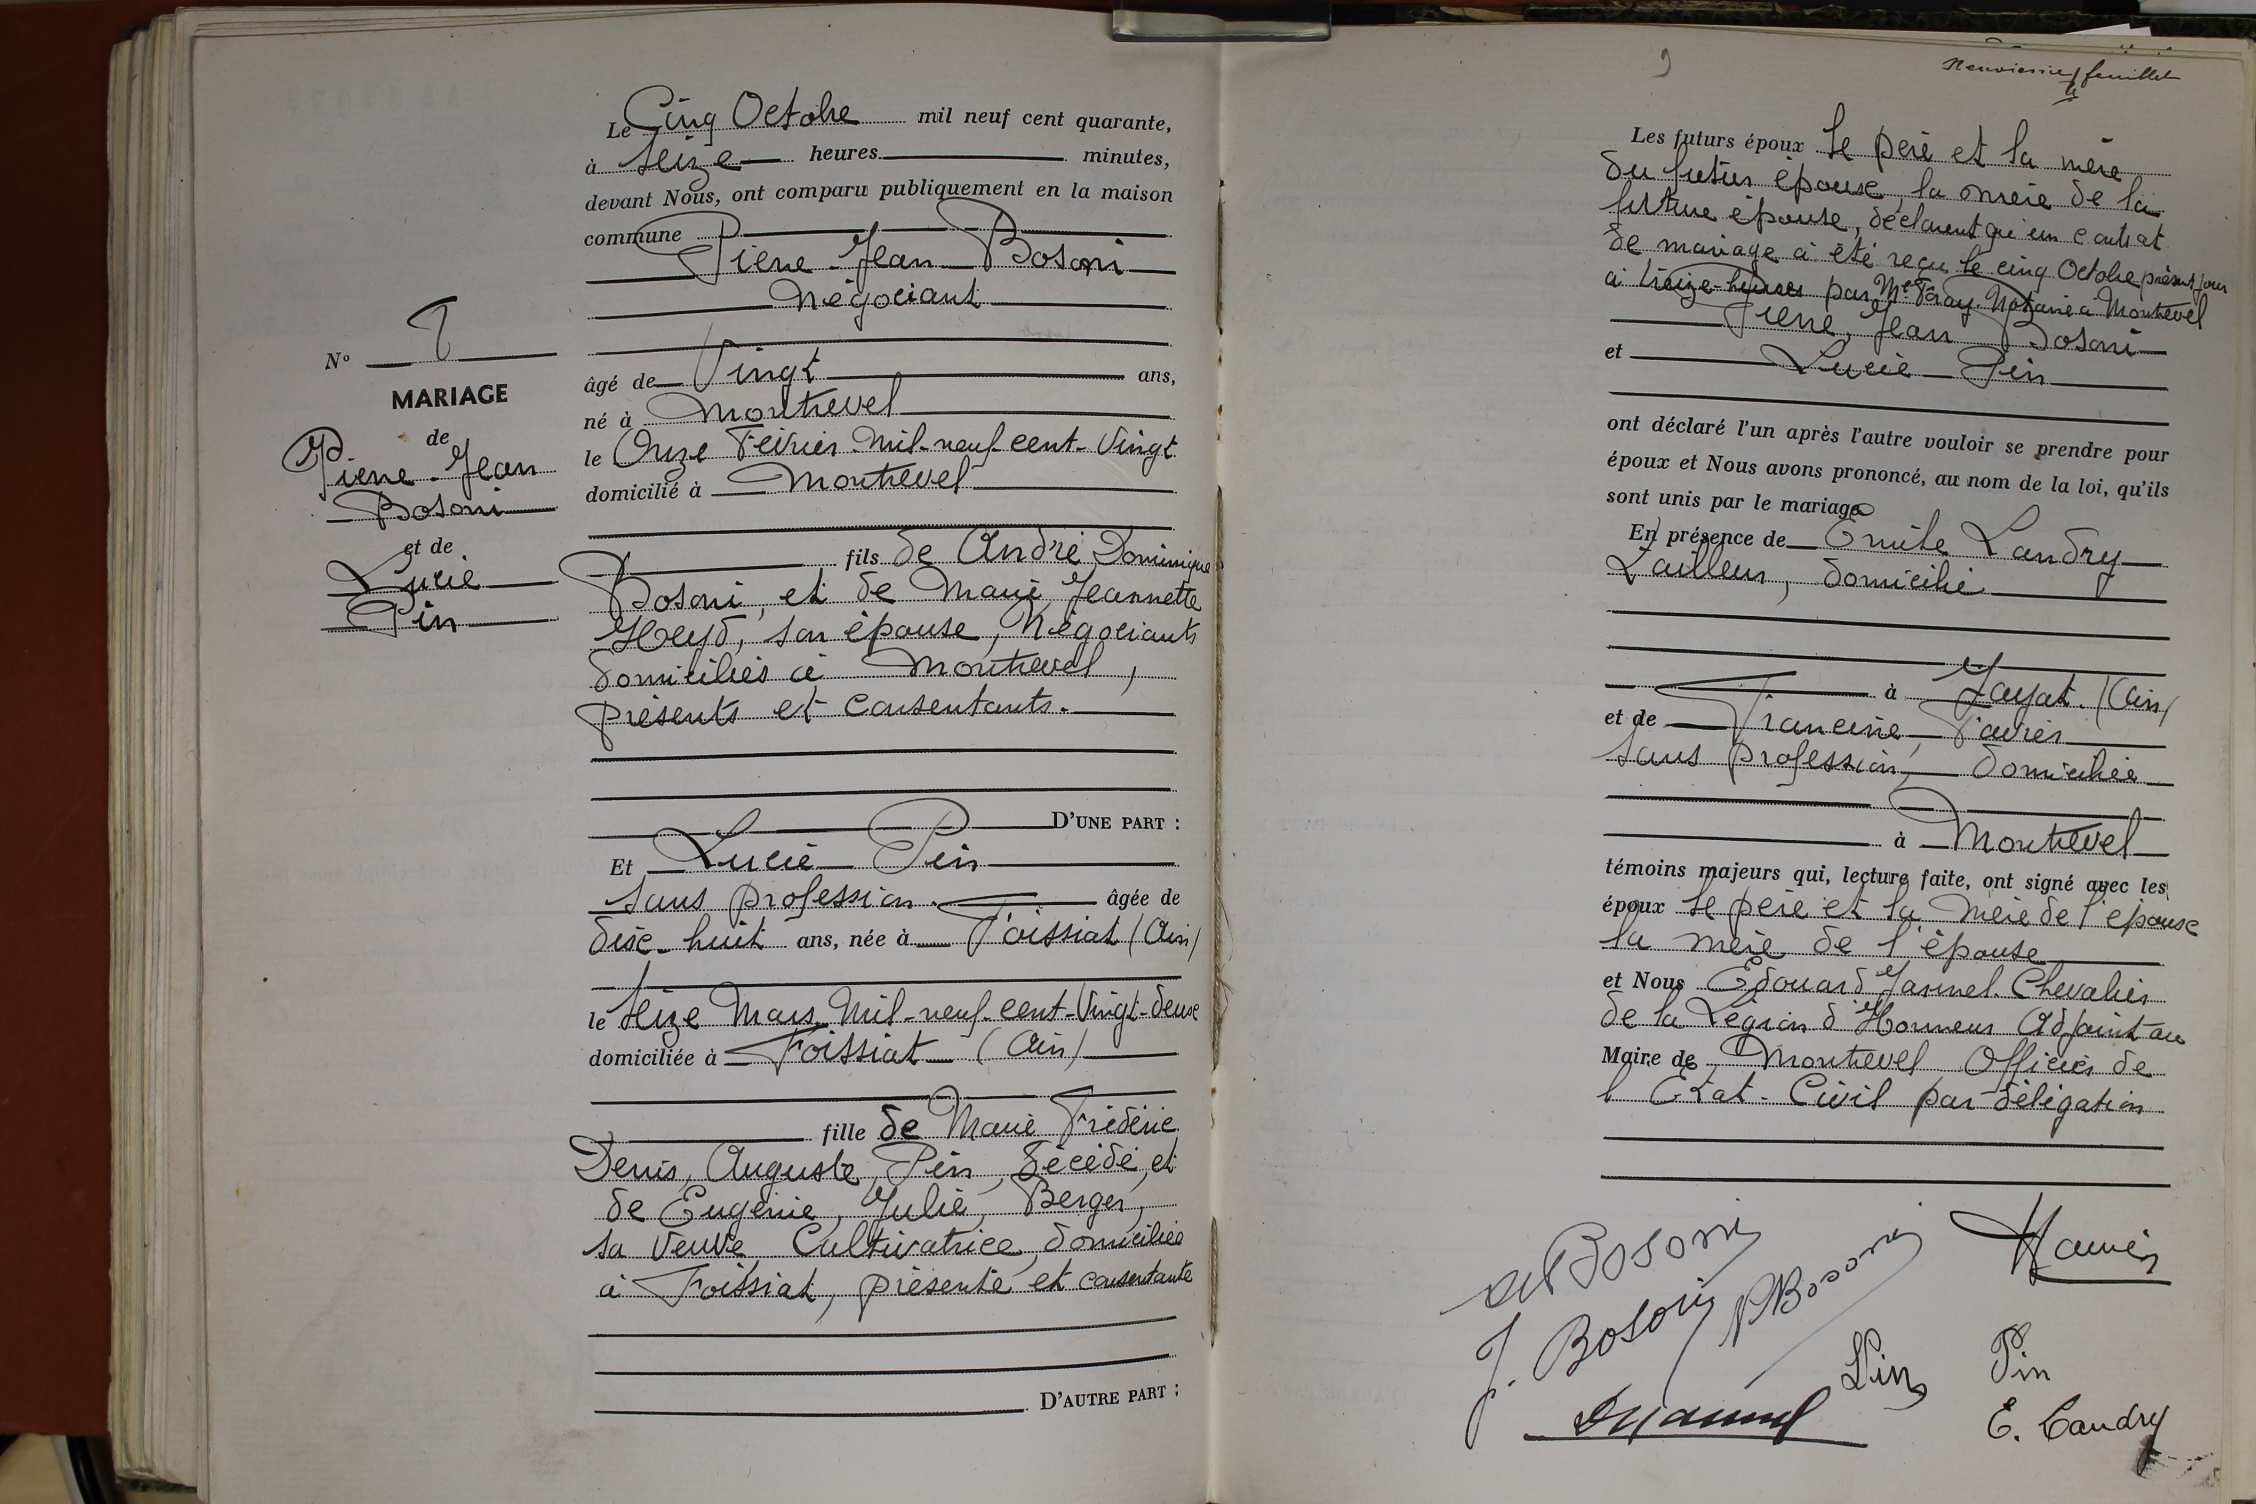 Le Cinq Octobre mil neuf cent quarante,
à seize heures minutes,
devant Nous, ont comparu publiquement en la maison
commune
Pierre-Jean Bosoni
Négociant
âgé de Vingt ans,
né à Montrevel
le Onze Février Mil-neuf-cent-Vingt
domicilié à Montrevel
fils de André, Dominique
Bosoni, et de Marie Jeannette
Heyd, son épouse, Négociants
domiciliés à Montrevel,
présents et consentants.
D'UNE PART :
Et Lucie Pin
sans profession. âgée de
dix-huit ans, née à Foissiat (Ain)
le seize Mars Mil-neuf-cent-Vingt-deux
domiciliée à Foissiat (Ain)
fille de Marie Frédéric
Denis, Auguste, Pin, décédé, et
de Eugénie, Julie, Berger,
sa veuve, Cultivatrice, domiciliée
à Foissiat, présente et consentante
D'AUTRE PART :
N° 8
MARIAGE
de
Pierre-Jean
Bosoni
et de
Lucie
Pin
9
Neuvième feuillet
Les futurs époux le père et la mère
du futur époux, la mère de la
future épouse, déclarent qu'un contrat
de mariage a été reçu le cinq Octobre présent jour
à treize heures par Me Notaire à Montrevel
Pierre, Jean Bosoni
et Lucie Pin
ont déclaré l'un après l'autre vouloir se prendre pour
époux et Nous avons prononcé, au nom de la loi, qu'ils
sont unis par le mariage
En présence de Emile Landry
Tailleur, domicilié
à Jayat. (Ain)
et de Francine, Favier
sans profession, domiciliée
à Montrevel
témoins majeurs qui, lecture faite, ont signé avec les
époux le père et la mère de l'épouse
la mère de l'épouse
et Nous Edouard Jasinel. Chevalier
de la Légion d'Honneur Adjoint au
Maire de Montrevel Officier de
l'Etat-Civil par délégation
Bosoni
J. Bosoni
P Bosoni
Pin
E. Landry